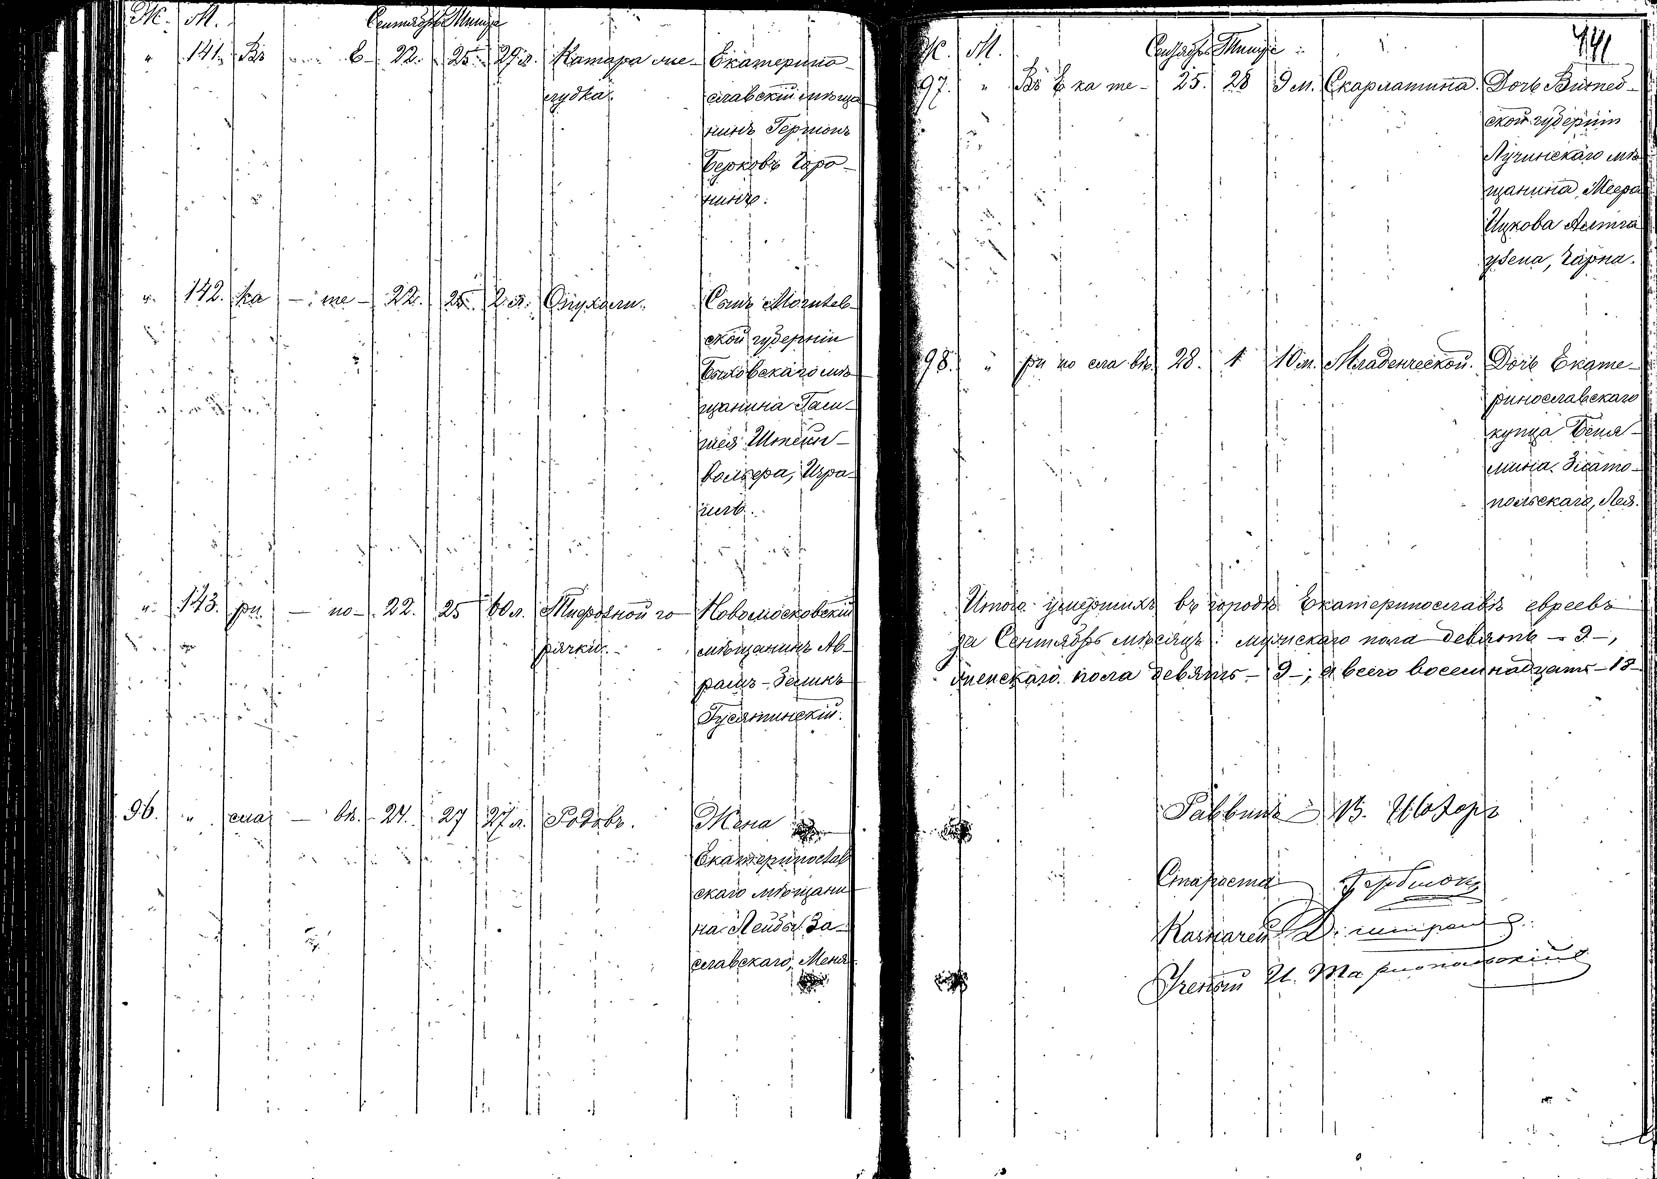 Ж. М. Сентябрь Тишре
" 141. Въ Е- 22. 25. 29 л. Катара же- Екатерино-
лудка. славскій мѣща
нинъ Гершонъ
Берковъ Горо-
нинъ.
" 142. ка - те - 22. 25. 2 л. Опухоли. Сынъ Могилев-
ской губерніи
Быховскаго мѣ-
щанина
Штейн-
вольфа, Изра-
иль.
" 143. ри - но - 22. 25 60 л. Тифозной го- Новомосковскій
рячки. мѣщанинъ Ав-
рамъ-Зеликъ
Гусятинскій.
96. " сла - вѣ. - 24. 27 27 л. Родовъ. Жена
Екатеринослав
скаго мѣщани
на Лейбы За-
славскаго, Меня.
141
Ж. М. Сентябрь Тишре
97. " Въ Е ка те - 25. 28 9 м. Скарлатина. Дочь Витеб-
ской губерніи
Лучинскаго мѣ-
щанина Меера
Ицкова Альтга
узена, Чарна.
98. " ри но сла вѣ. 28. 1 10 м. Младенческой. Дочь Екате-
ринославскаго
купца Беня-
мина Злато-
польскаго, Лея.
Итого умершихъ въ городѣ Екатеринославѣ евреевъ
за Сентябрь мѣсяцъ: мужскаго пола девять - 9 -,
женскаго пола девять - 9 -; а всего восемнадцать - 18 -
Раввинъ В. Шохоръ
Староста
Казначей
Ученый И. Маріопольскій